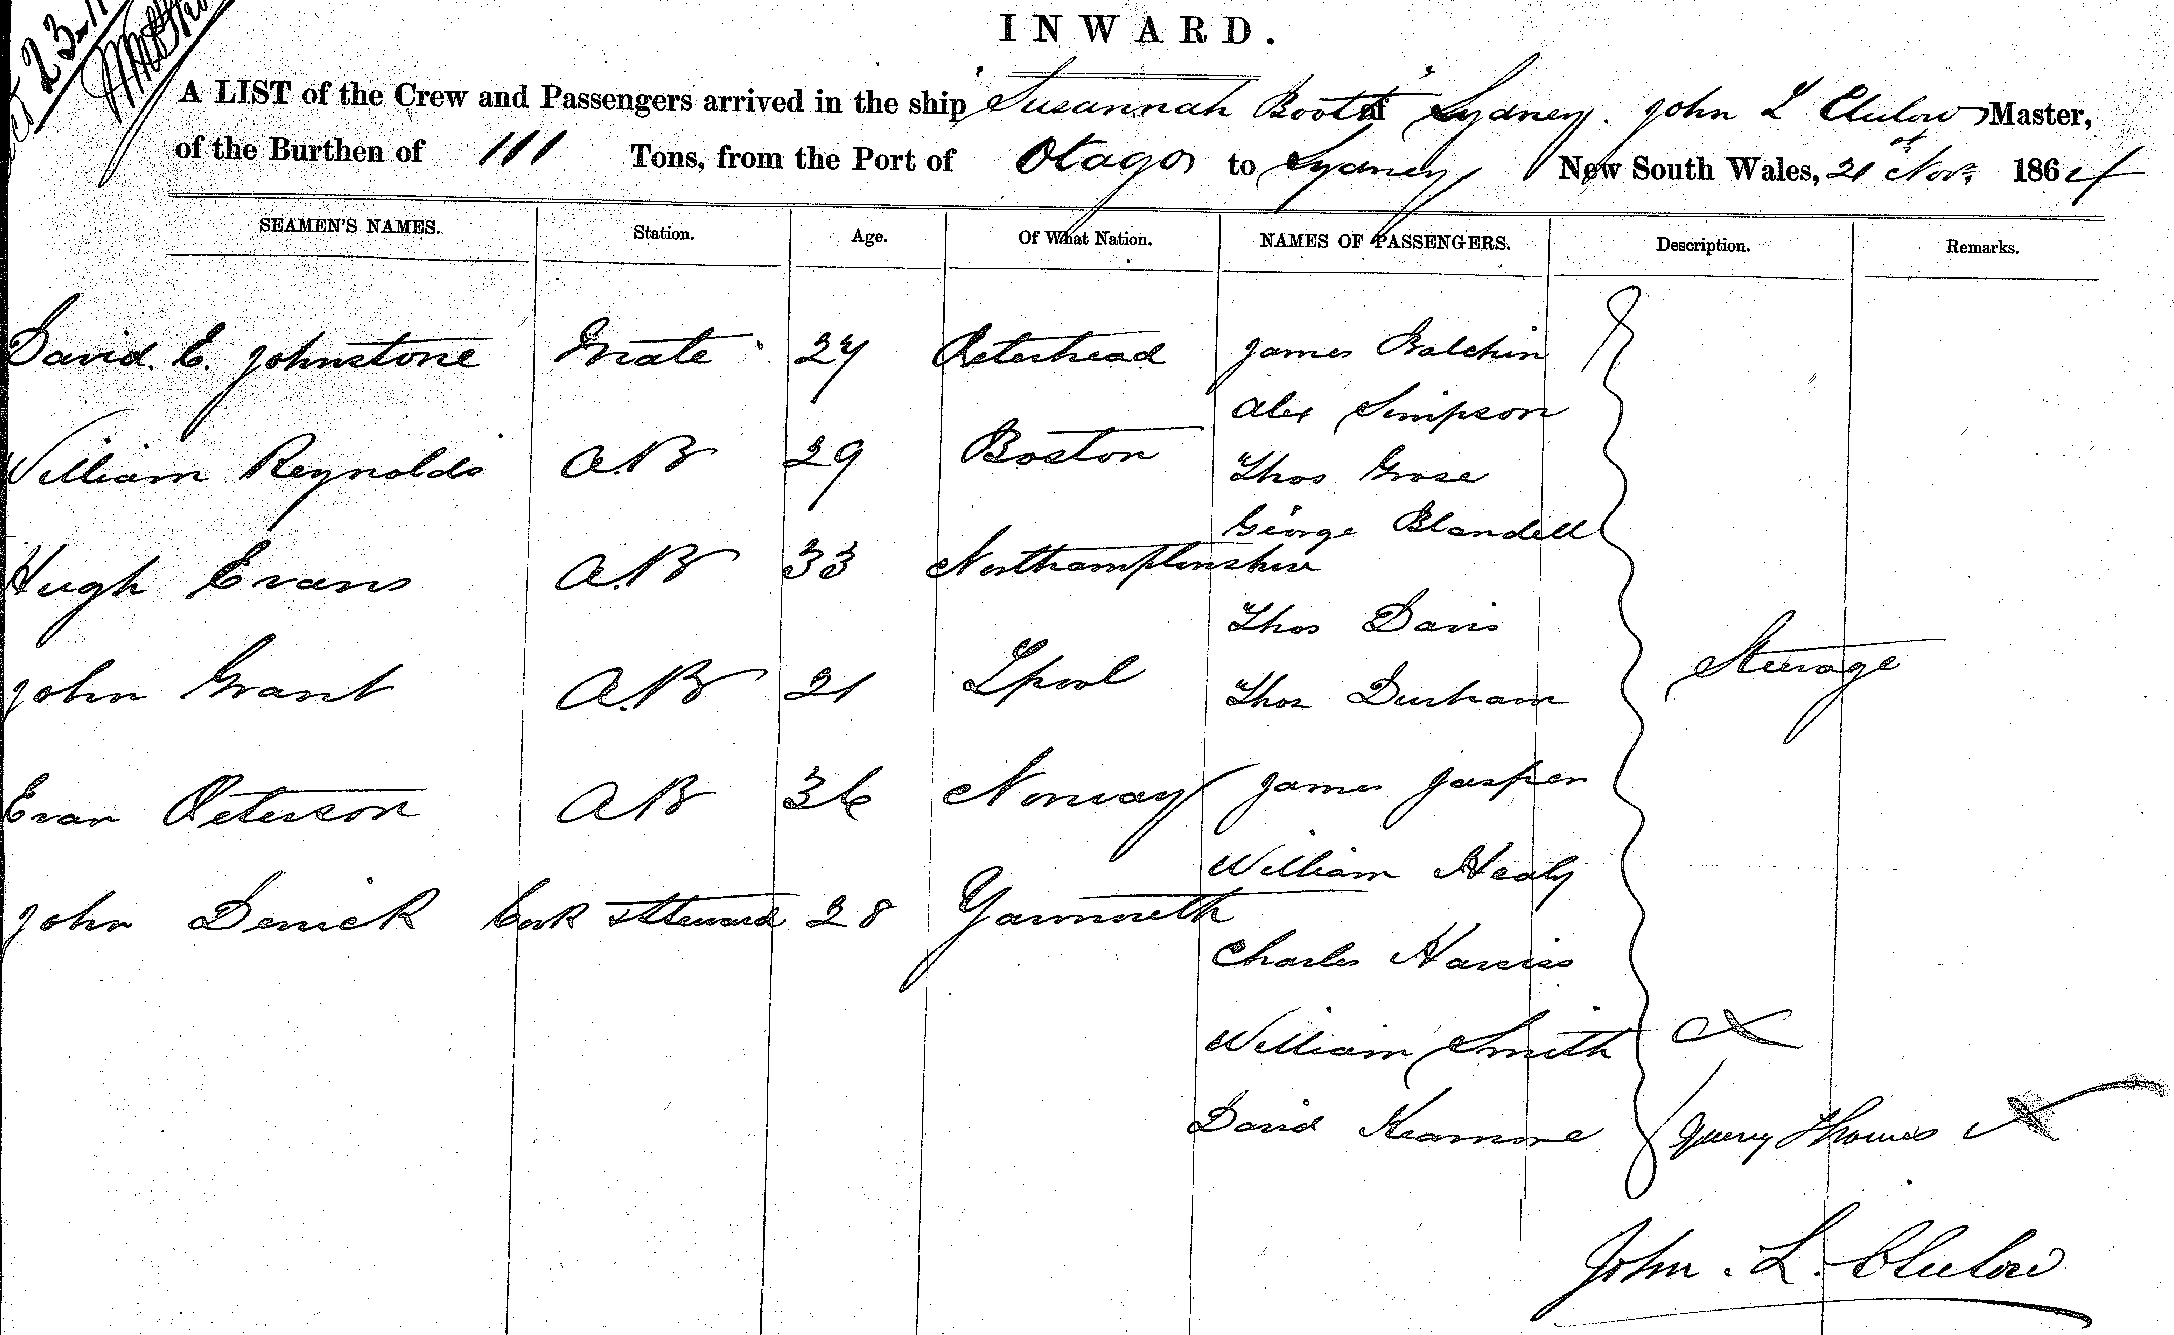 INWARD.
A LIST of the Crew and Passengers arrived in the ship "Susannah Booth" of Sydney. John L Clulow Master,
of the Burthen of 111 Tons, from the Port of Otago to Sydney New South Wales, 21st Nov. 1864
SEAMEN'S NAMES. Station. Age. Of What Nation. NAMES OF PASSENGERS. Description. Remarks.
David. C. Johnstone Mate 27 Peterhead James Balchin
Alex Simpson
William Reynolds A.B 29 Boston Thos Grose
George Blandell
Hugh Evans A.B 33 Northamptonshire
Thos Davis
John Grant A.B 21 Lpool Thos Durham Steerage
Evan Peterson AB 36 Norway James Jasper
William Healy
John Derrick Cook & Steward 28 Yarmouth
Charles Harriss
William Smith X
David Thomas X
John. L. Clulow